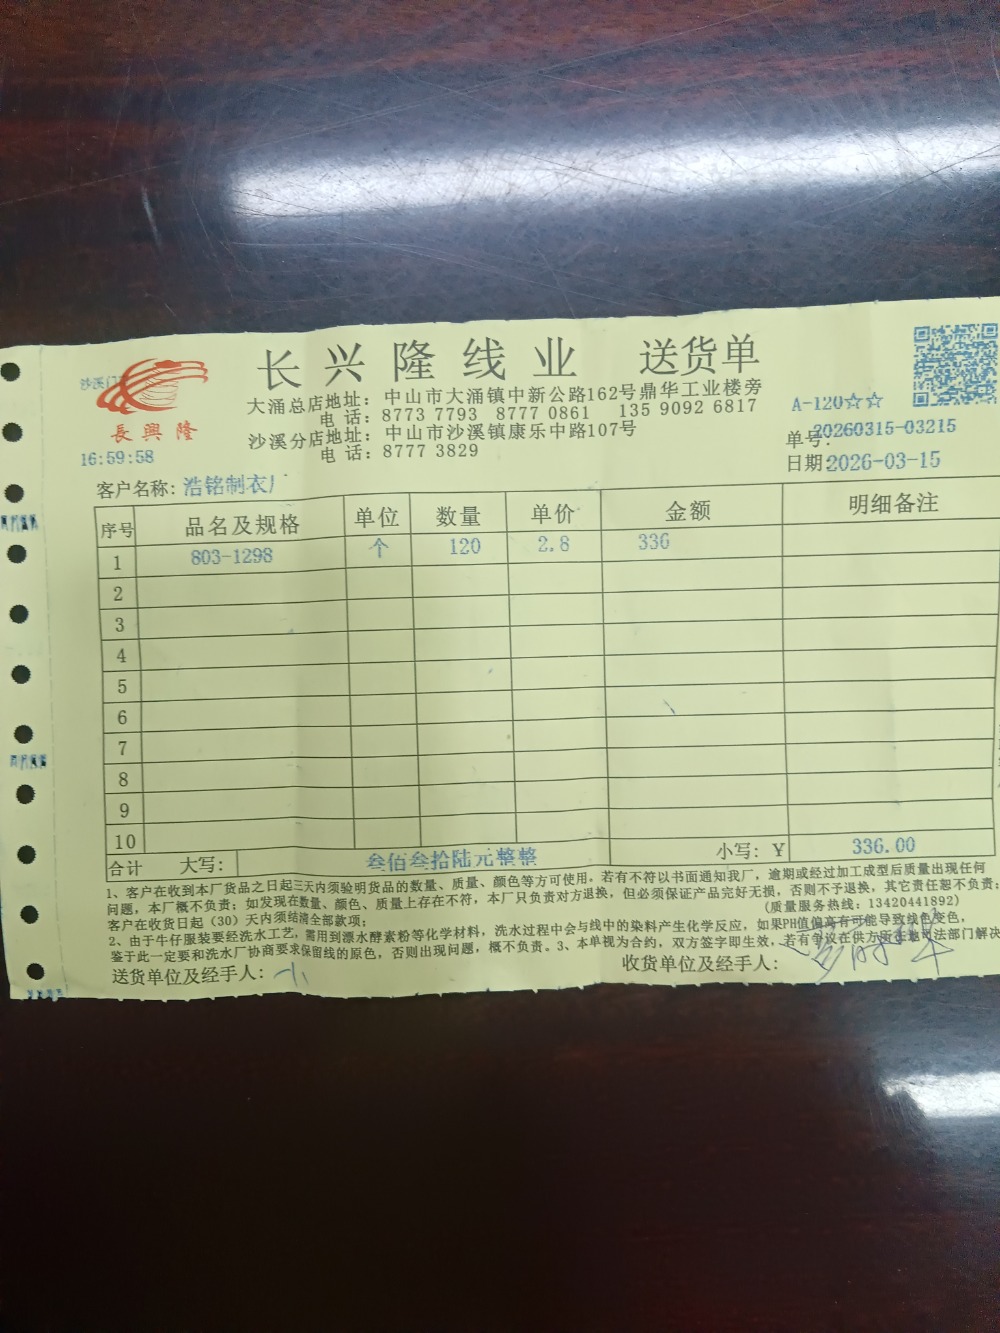 长兴隆线业 送货单
沙溪
長興隆
16:59:58
大涌总店地址：中山市大涌镇中新公路162号鼎华工业楼旁
电话：8773 7793 8777 0861 135 9092 6817
沙溪分店地址：中山市沙溪镇康乐中路107号
电话：8777 3829
A-120☆☆
单号：20260315-03215
日期：2026-03-15
客户名称：浩铭制衣厂
序号 品名及规格 单位 数量 单价 金额 明细备注
1 803-1298 个 120 2.8 336
2
3
4
5
6
7
8
9
10
合计 大写： 叁佰叁拾陆元整整 小写：Y 336.00
1、客户在收到本厂货品之日起三天内须验明货品的数量、质量、颜色等方可使用。若有不符以书面通知我厂，逾期或经过加工成型后质量出现任何
问题，本厂概不负责；如发现在数量、颜色、质量上存在不符，本厂只负责对方退换，但必须保证产品完好无损，否则不予退换，其它责任恕不负责；
客户在收货日起（30）天内须结清全部款项； (质量服务热线：13420441892)
2、由于牛仔服装要经洗水工艺，需用到漂水酵素粉等化学材料，洗水过程中会与线中的染料产生化学反应，如果PH值偏高有可能导致线色变色，
鉴于此一定要和洗水厂协商要求保留线的原色，否则出现问题，概不负责。3、本单视为合约，双方签字即生效，若有争议在供方所在地司法部门解决
送货单位及经手人： 收货单位及经手人：